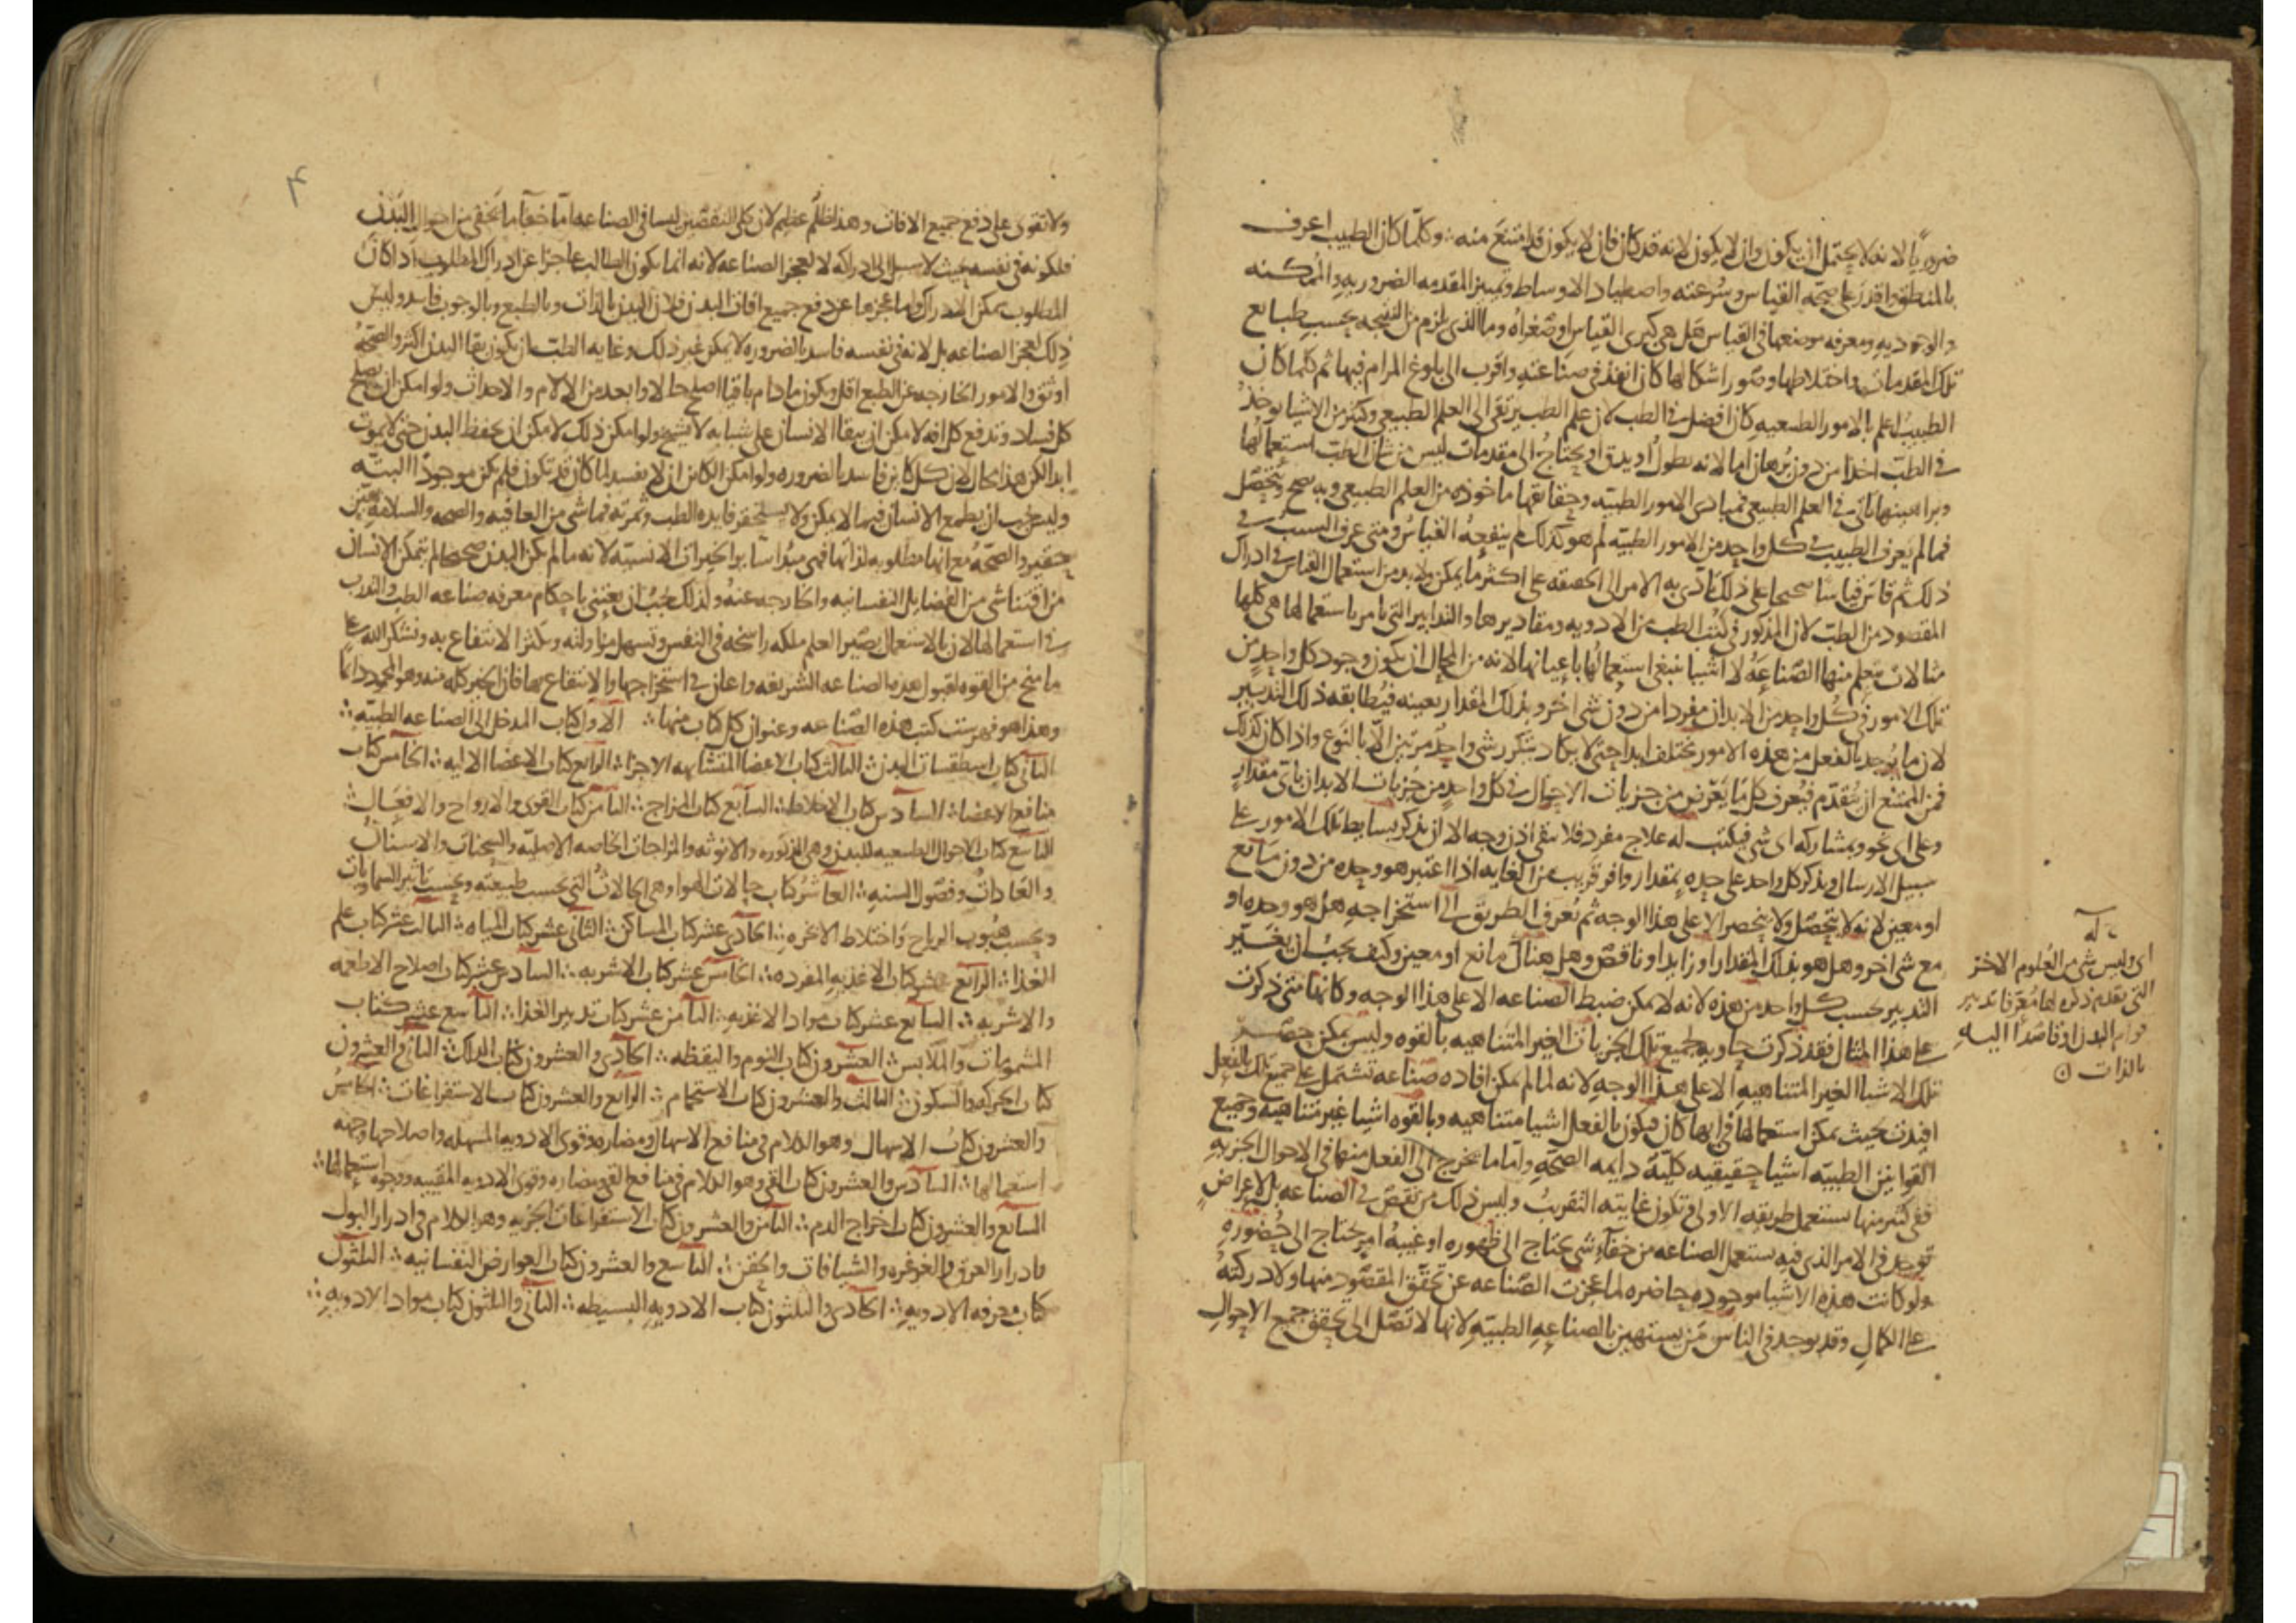 ضروريا لانه لا يحتمل ان يكون وان لا يكون لانه قد كان فان لا يكون قد امتنع منه وكلما كان الطبيب اعرف
بالمنطق واقدر على صحة القياس وسرعته واصطياد الاوساط وتمييز المقدمه الضروريه والممكنه
والوجوديه ومعرفه موضعها في القياس هل هي كبرى القياس او صغراه وما الذي يلزم من النتيجه بحسب طبايع
تلك المقدمات واختلاطها وصور اشكالها كان انفذ في صناعته واقرب الى بلوغ المرام فيها ثم كلما كان
الطبيب اعلم بالامور الطبيعيه كان افضل في الطب لان علم الطب يرتقي الى العلم الطبيعي وكثير من الاشيا يوخذ
في الطب اخذا من دون برهان اما لانه يطول او يدق او يحتاج الى مقدمات ليس من شان الطب استعمالها
وبراهينها تاتي في العلم الطبيعي فمبادى الامور الطبيه وحقايقها ماخوذه من العلم الطبيعي وبه تصح وتتحصل
فما لم يعرف الطبيب في كل واحد من الامور الطبيه لم هو كذلك لم ينفعه القياس ومتى عرف السبب في
ذلك ثم قاس قياسا صحيحا على ذلك تادى به الامر الى الحقيقه على اكثر ما يمكن ولا بد من استعمال القياس في ادراك
المقصود من الطب لان المذكور في كتب الطب من الادويه ومقاديرها والتدابير التي يامر باستعمالها هي كلها
مثالات يتعلم منها الصناعه لا اشيا ينبغي استعمالها باعيانها لانه من المحال ان يكون وجود كل واحد من
تلك الامور في كل واحد من الابدان مفردا من دون شي اخر وبذلك المقدار بعينه فيطابقه ذلك التدبير
لان ما يوجد بالفعل من هذه الامور مختلف ابدا حتى لا يكاد يتكرر شي واحد مرتين الا بالنوع واذا كان كذلك
فمن الممتنع ان يتقدم فيعرف كل ما يعرض من جزيات الاحوال في كل واحد من جزيات الابدان باي مقدار
وعلى اي نحو وبمشاركه اي شي فيكتب له علاج مفرد فلا يبقى اذن وجه الا ان يذكر بسايط تلك الامور على
سبيل الارسال ويذكر كل واحد على حده بمقدار وافر قريب من الغايه اذا اعتبر هو وحده من دون مانع
او معين لانه لا يتحصل ولا ينحصر الا على هذا الوجه ثم يعرف الطريق الى استخراجه هل هو وحده او
مع شي اخر وهل هو بذلك المقدار او زايد او ناقص وهل هناك مانع او معين وكيف يجب ان يغير
التدبير بحسب كل واحد من هذه لانه لا يمكن ضبط الصناعه الا على هذا الوجه وكانها متى ذكرت
على هذا المثال فقد ذكرت حاويه لجميع تلك الجزيات الغير المتناهيه بالقوه وليس يمكن حصر
تلك الاشيا الغير المتناهيه الا على هذا الوجه لانه لما لم يمكن افاده صناعه تشتمل على جميع تلك بالفعل
افيدت بحيث يمكن استعمالها في ايها كان فيكون بالفعل اشيا متناهيه وبالقوه اشيا غير متناهيه وجميع
القوانين الطبيه اشيا حقيقيه كليه دايمه الصحه واما ما يخرج الى الفعل منها في الاحوال الجزيه
ففي كثير منها يستعمل طريقه الاولى وتكون غايته التقريب وليس ذلك من نقص في الصناعه بل لاعراض
توجد في الامر الذي فيه يستعمل الصناعه من خفاء شي يحتاج الى ظهوره او غيبة امر يحتاج الى حضوره
ولو كانت هذه الاشيا موجوده حاضره لما عجزت الصناعه عن تحقق المقصود منها ولادركته
على الكمال وقد يوجد في الناس من يستهين بالصناعه الطبيه لانها لا تصل الى تحقق جميع الاحوال
اي وليس شي من العلوم الاخر
التي يقدم ذكره لها معرفا تدبير
قوام البدن او قاصدا اليه
بالذات
٣
ولا تقوى على دفع جميع الافات وهذا ظلم عظيم لان كلى النقصين ليسا في الصناعه اما خفا ما يخفى من احوال البدن
فلكونه في نفسه بحيث لا سبيل الى ادراكه لا لعجز الصناعه لانه انما يكون الطالب عاجزا عن ادراك المطلوب اذا كان
المطلوب يمكن الادراك واما عجزها عن دفع جميع افات البدن فلان البدن بالذات وبالطبع وبالوجوب فاسد وليس
ذلك لعجز الصناعه بل لانه في نفسه فاسد بالضروره لا يمكن غير ذلك وغايه الطب ان يكون بقا البدن اكثر والصحة
اوثق والامور الخارجه عن الطبع اقل ويكون ما دام باقيا اصلح حالا وابعد من الالام والاحداث ولو امكن ان يصلح
كل فساد وتدفع كل افه لامكن ان يبقا الانسان على شبابه لا يشيخ ولو امكن ذلك لامكن ان يحفظ البدن حتى لا يموت
ابدا لكن هذا محال لان كل كاين فاسد بالضروره ولو امكن الكاين ان لا يفسد لما كان قد تكون فلم يكن موجودا البته
وليس يجب ان يطمع الانسان فيما لا يمكن ولا يستحقر فايده الطب وثمرته فما شي من العافيه والصحه والسلامه بهين
حقير والصحة مع انها مطلوبه لذاتها فهي مبدا ساير الخيرات الانسيه لانه ما لم يكن البدن صحيحا لم يتمكن الانسان
من اقتنا شي من الفضايل النفسانيه والخارجه عنه ولذلك يجب ان يعتني باحكام معرفه صناعه الطب والتدرب
في استعمالها لان بالاستعمال يصير العلم ملكه راسخه في النفس وتسهل مزاولته ويكثر الانتفاع به ونشكر الله على
ما منح من القوه لقبول هذه الصناعه الشريفه واعان في استخراجها والانتفاع بها فان الخير كله منه وهو المحمود دائما
وهذا هو فهرست كتب هذه الصناعه وعنوان كل كتاب منها الاول كتاب المدخل الى الصناعه الطبيه
الثاني كتاب اسطقسات البدن الثالث كتاب الاعضا المتشابهه الاجزا الرابع كتاب الاعضا الاليه الخامس كتاب
منافع الاعضا السادس كتاب الاخلاط السابع كتاب المزاج الثامن كتاب القوى والارواح والافعال
التاسع كتاب الاحوال الطبيعيه للبدن وهي الذكوره والانوثه والمزاجات الخاصه الاصليه والسحنات والاسنان
والعادات وفصول السنه العاشر كتاب حالات الهوا وهي الحالات التي بحسب طبيعته وبحسب تاثير السماويات
وبحسب هبوب الرياح واختلاط الابخره الحادي عشر كتاب المساكن الثاني عشر كتاب المياه الثالث عشر كتاب علم
الغذا الرابع عشر كتاب الاغذيه المفرده الخامس عشر كتاب الاشربه السادس عشر كتاب اصلاح الاطعمه
والاشربه السابع عشر كتاب مواد الاغذيه الثامن عشر كتاب تدبير الغذا التاسع عشر كتاب
المشمومات والملابس العشرون كتاب النوم واليقظه الحادي والعشرون كتاب الدلك الثاني والعشرون
كتاب الحركه والسكون الثالث والعشرون كتاب الاستحمام الرابع والعشرون كتاب الاستفراغات الخامس
والعشرون كتاب الاسهال وهو الكلام في منافع الاسهال ومضاره وقوى الادويه المسهله واصلاحها وجهه
استعمالها السادس والعشرون كتاب القي وهو الكلام في منافع القي ومضاره وقوى الادويه المقييه ووجوه استعمالها
السابع والعشرون كتاب اخراج الدم الثامن والعشرون كتاب الاستفراغات الجزيه وهو الكلام في ادرار البول
وادرار العرق والغرغره والشيافات والحقن التاسع والعشرون كتاب العوارض النفسانيه الثلثون
كتاب معرفه الادويه الحادي والثلثون كتاب الادويه البسيطه الثاني والثلثون كتاب مواد الادويه